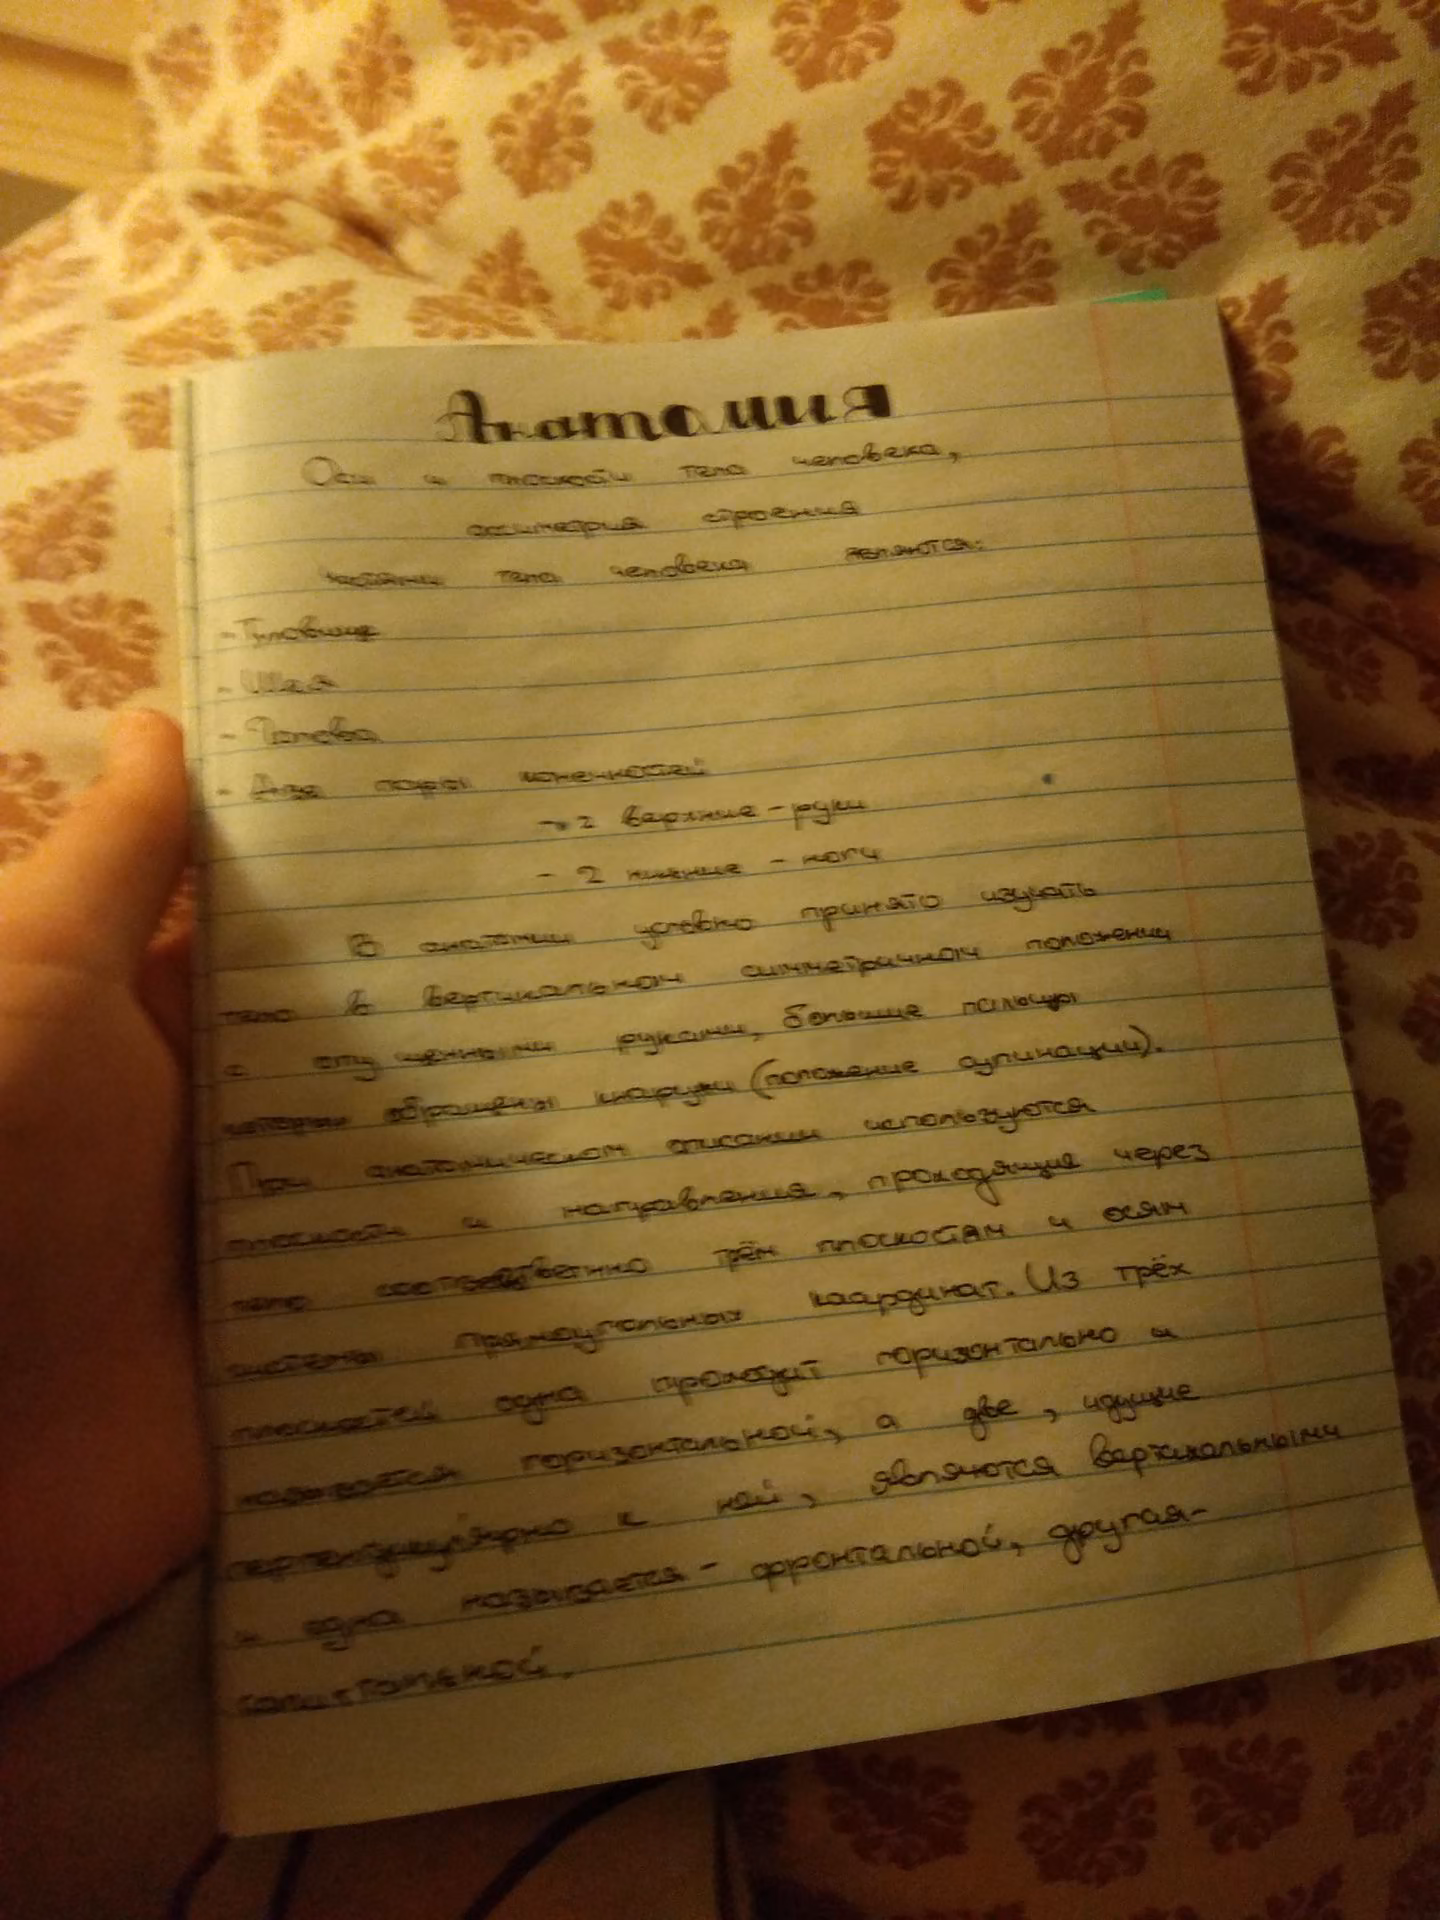 Анатомия
Оси и плоскости тела человека,
ассиметрия строения
Частями тела человека являются:
- Туловище
- Шея
- Голова
- Две пары конечностей
- 2 верхние - руки
- 2 нижние - ноги
В анатомии условно принято изучать
тело в вертикальном симметричном положении
с опущенными руками, большие пальцы
которых обращены кнаружи (положение супинации).
При анатомическом описании используются
плоскости и направления, проходящие через
тело соответственно трём плоскостям и осям
системы прямоугольных координат. Из трёх
плоскостей одна проходит горизонтально и
называется горизонтальной, а две, идущие
перпендикулярно к ней, являются вертикальными
и одна называется - фронтальной, другая-
сагиттальной.